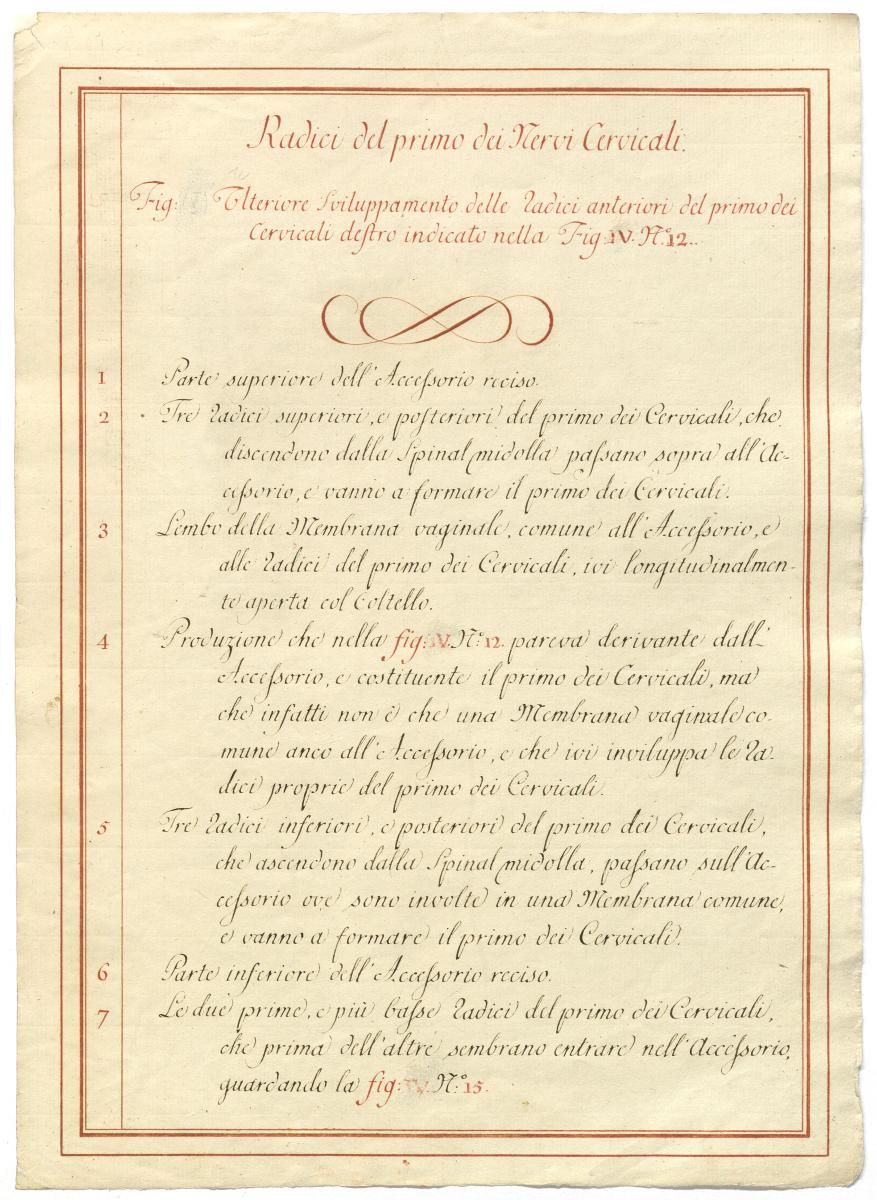 Radici del primo dei Nervi Cervicali.
Fig: Ulteriore Sviluppamento delle Radici anteriori del primo dei
Cervicali deſtro indicato nella Fig: IV. N.º 12.
1 Parte superiore dell'Acceſsorio reciso.
2 Tre Radici superiori, e poſteriori del primo dei Cervicali, che
discendono dalla Spinal midolla paſsano sopra all'Ac-
ceſsorio, e vanno a formare il primo dei Cervicali.
3 Lembo della Membrana vaginale, comune all'Acceſsorio, e
alle Radici del primo dei Cervicali, ivi longitudinalmen-
te aperta col Coltello.
4 Produzione che nella fig: IV. N.º 12. pareva derivante dall'
Acceſsorio, e costituente il primo dei Cervicali, ma
che infatti non è che una Membrana vaginale co-
mune anco all'Acceſsorio, e che ivi inviluppa le Ra-
dici proprie del primo dei Cervicali.
5 Tre Radici inferiori, e posteriori del primo dei Cervicali,
che ascendono dalla Spinal midolla, paſsano sull'Ac-
ceſsorio ove sono involte in una Membrana comune,
e vanno a formare il primo dei Cervicali.
6 Parte inferiore dell'Acceſsorio reciso.
7 Le due prime, e più baſse Radici del primo dei Cervicali,
che prima dell'altre sembrano entrare nell'Acceſsorio,
guardando la fig: IV. N.º 15.